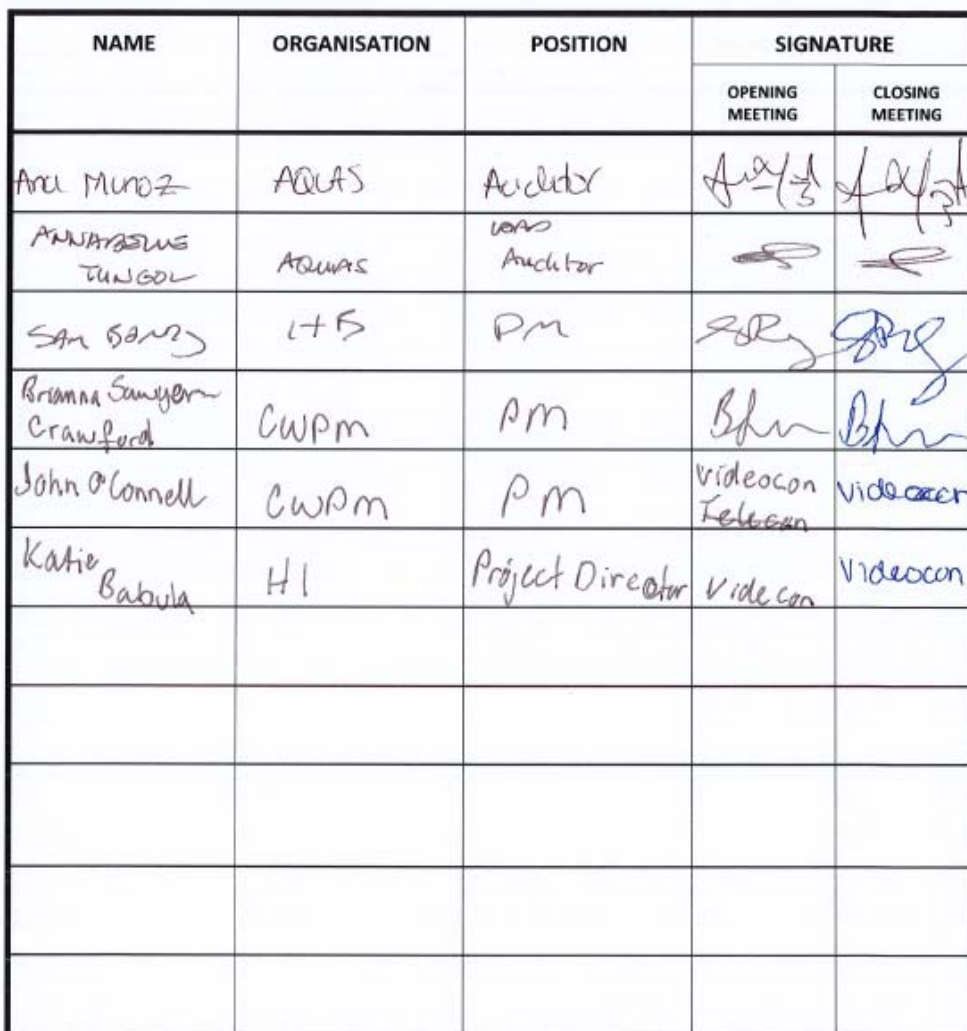 NAME ORGANISATION POSITION SIGNATURE
OPENING MEETING CLOSING MEETING
Ana Munoz AQUAS Auditor
ANNABELLE TUNGOL AQUAS LEAD Auditor
SAM PM
Brianna Sawyer Crawford CWPM PM
John O'Connell CWPM PM Videocon Telecon Videocon
Katie Babula HI Project Director Videcon Videocon